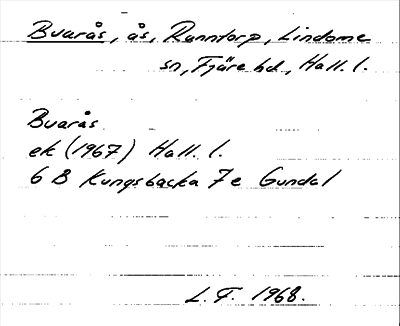 Buarås, ås, Ranntorp, Lindome
sn, Fjäre hd, Hall. l.
Buarås
ek (1967) Hall. l.
6 B Kungsbacka 7e Gundal
L. F. 1968.